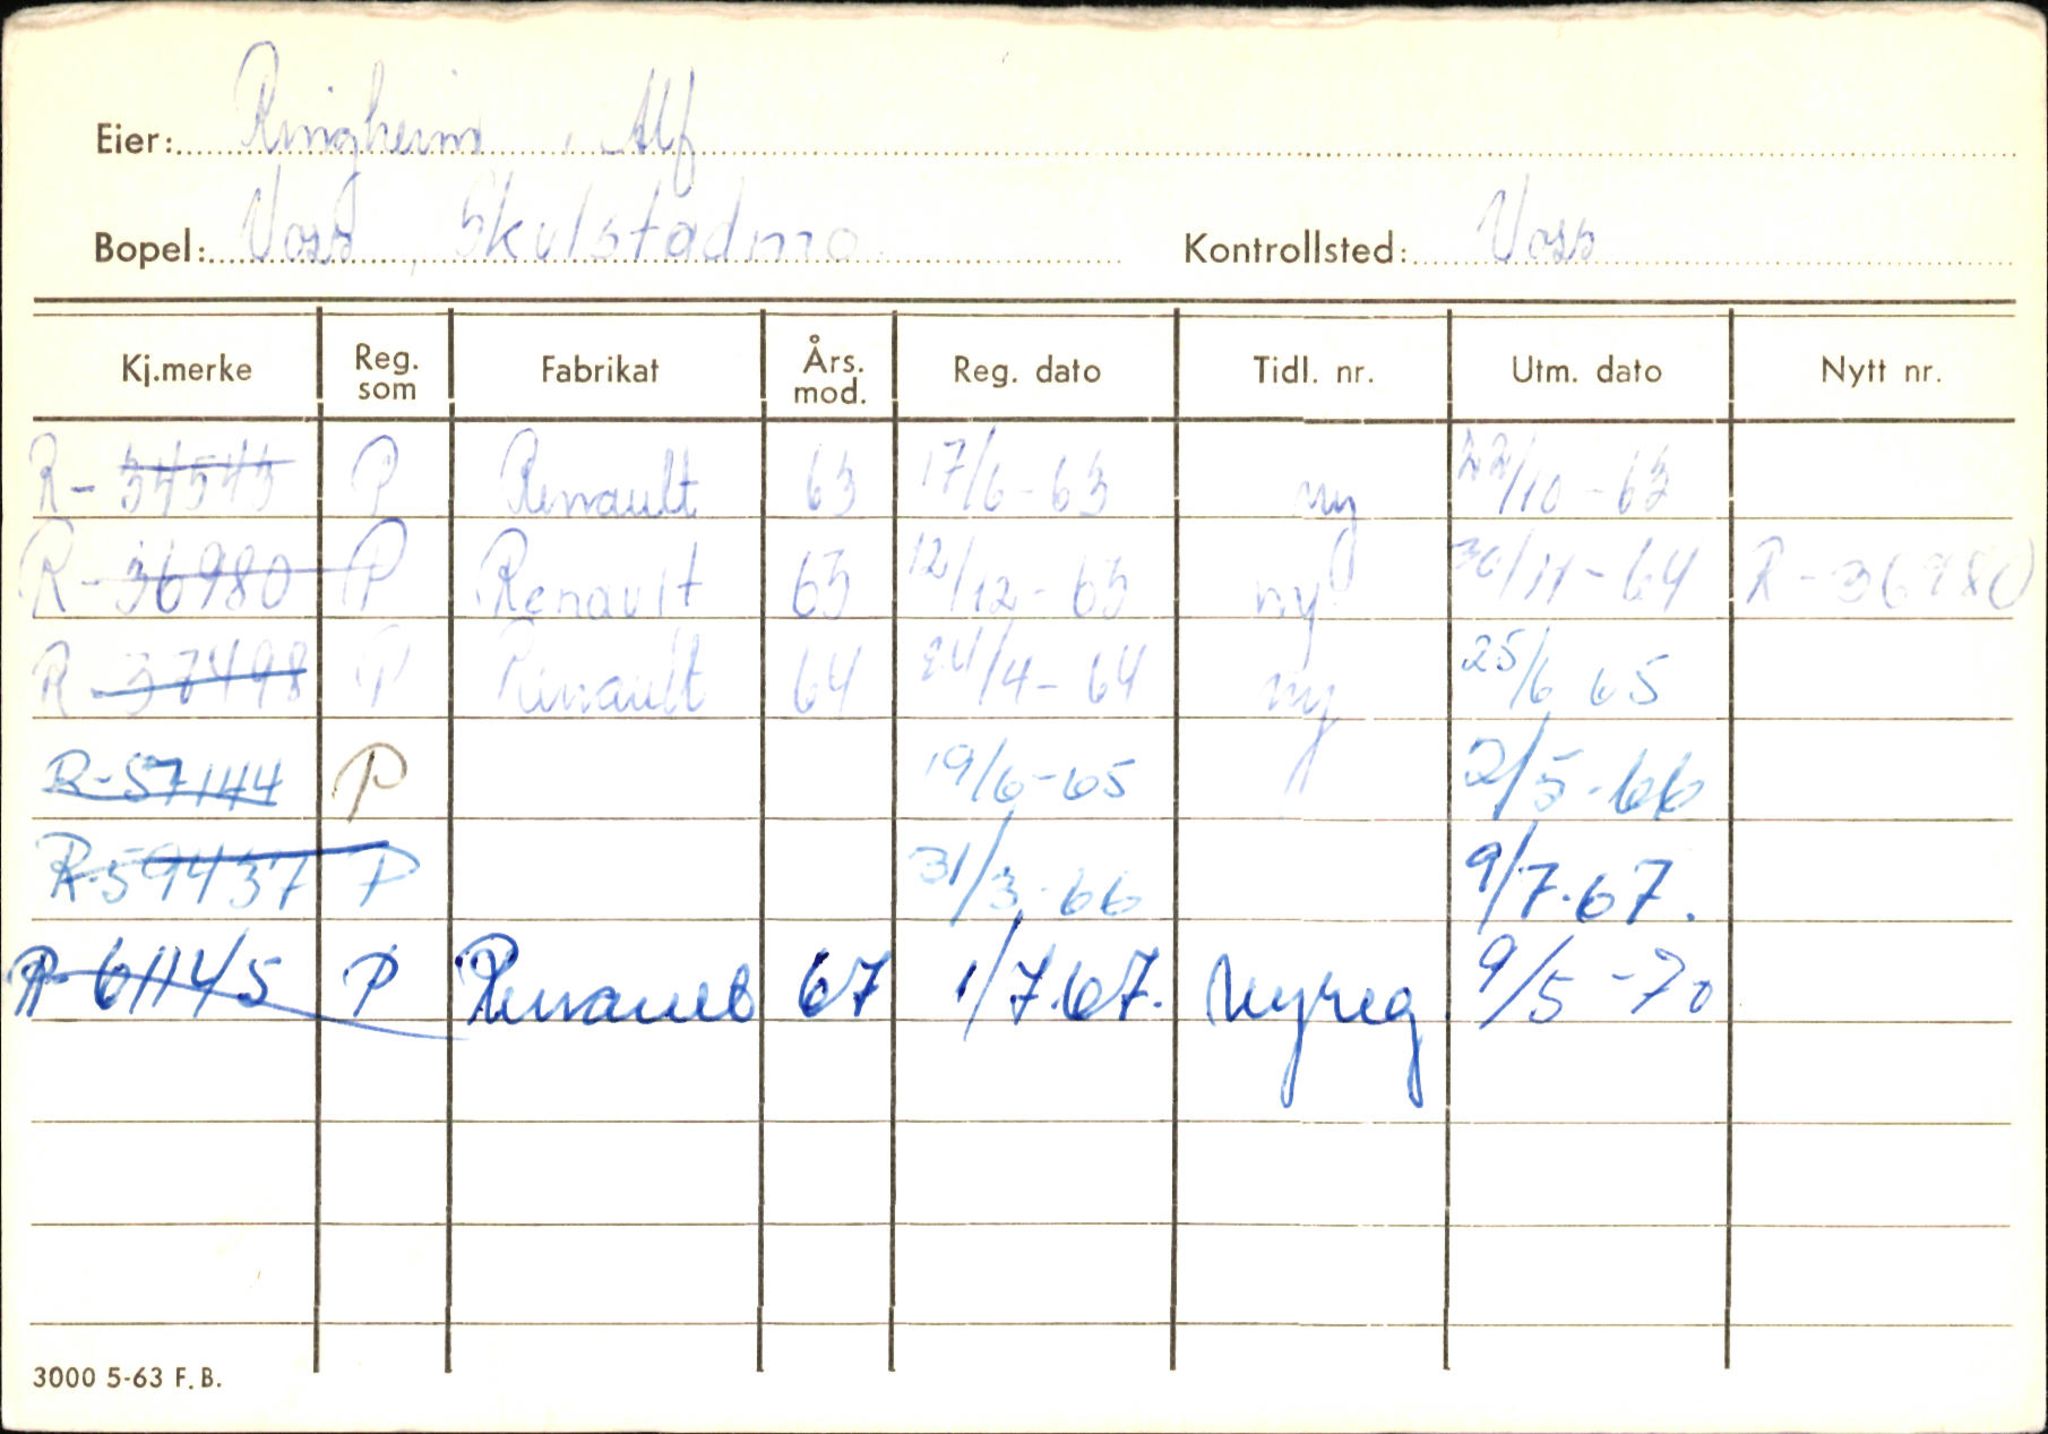 Eier: Ringheim, Alf
Bopel: Voss, Skulstadmo Kontrollsted: Voss
Kj.merke Reg. som Fabrikat Års. mod. Reg. dato Tidl. nr. Utm. dato Nytt nr.
R-34543 P Renault 63 17/6-63 ny 22/10-63
R-36980 P Renault 63 12/12-63 ny 30/11-64 R-36980
R-37498 P Renault 64 24/4-64 ny 25/6 65
R-57144 P 19/6-65 2/5-66
R-59437 P 31/3-66 9/7.67.
R-61145 P Renault 67 1/7.67. Nyreg. 9/5-70
3000 5-63 F.B.